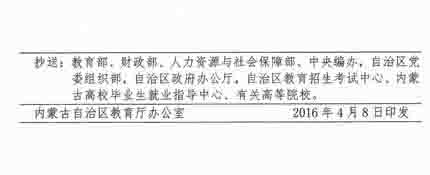 抄送：教育部、财政部、人力资源与社会保障部、中央编办，自治区党
委组织部、自治区政府办公厅，自治区教育招生考试中心、内蒙
古高校毕业生就业指导中心、有关高等院校。
内蒙古自治区教育厅办公室 2016年4月8日印发